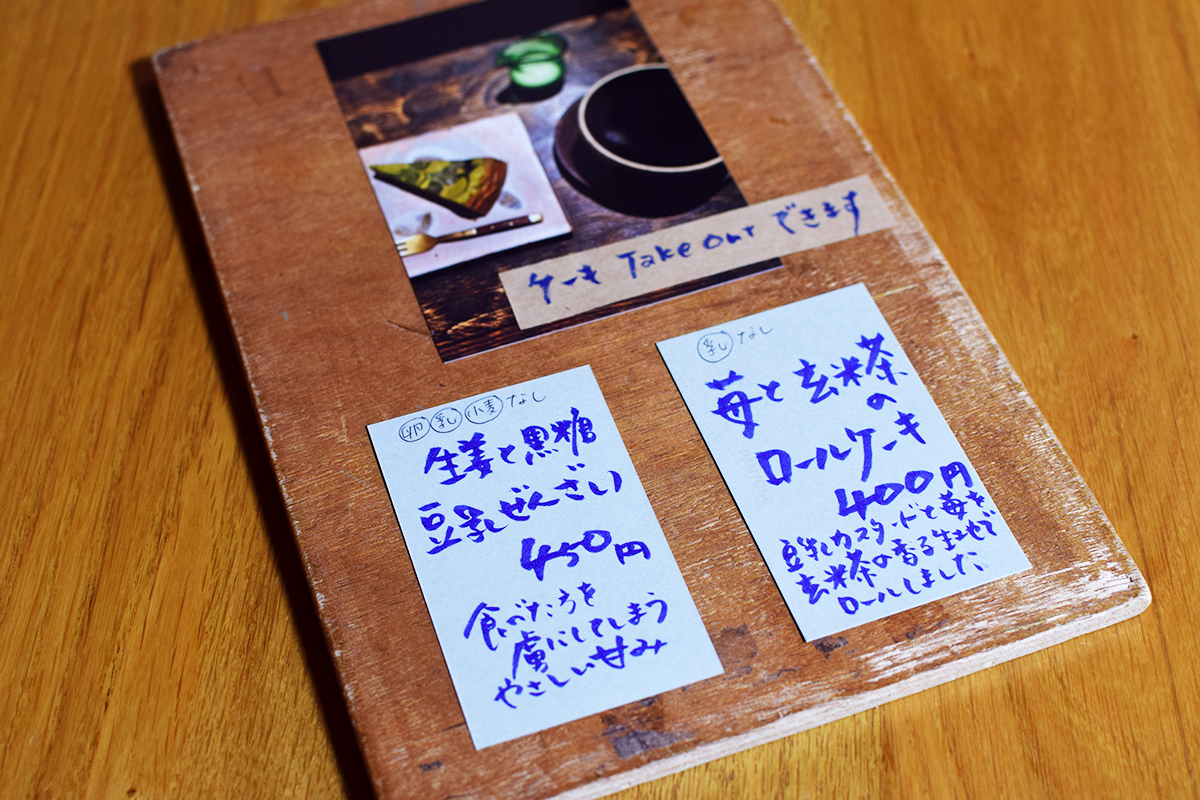 ケーキ Take out できます
卵 乳 小麦 なし
生姜と黒糖
豆乳ぜんざい
450円
食べた方を
虜にしてしまう
やさしい甘み
乳 なし
苺と玄米茶
の
ロールケーキ
400円
豆乳カスタードと苺を、
玄米茶の香る生地で
ロールしました